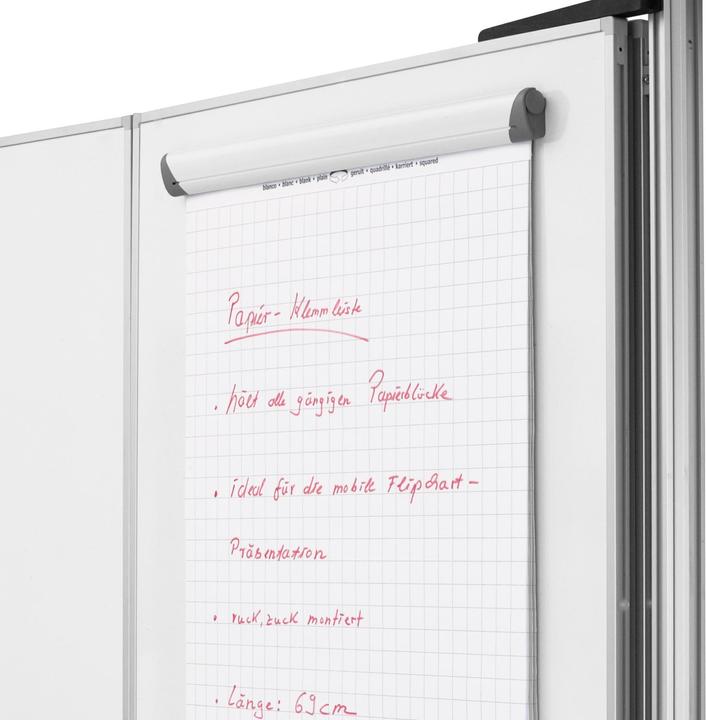 blanco • blanc • blank • plain geruit • quadrillé • karriert • squared
Papier-Klemmleiste
• hält alle gängigen Papierblöcke
• ideal für die mobile Flipchart-
Präsentation
• ruck, zuck montiert
• Länge: 69cm